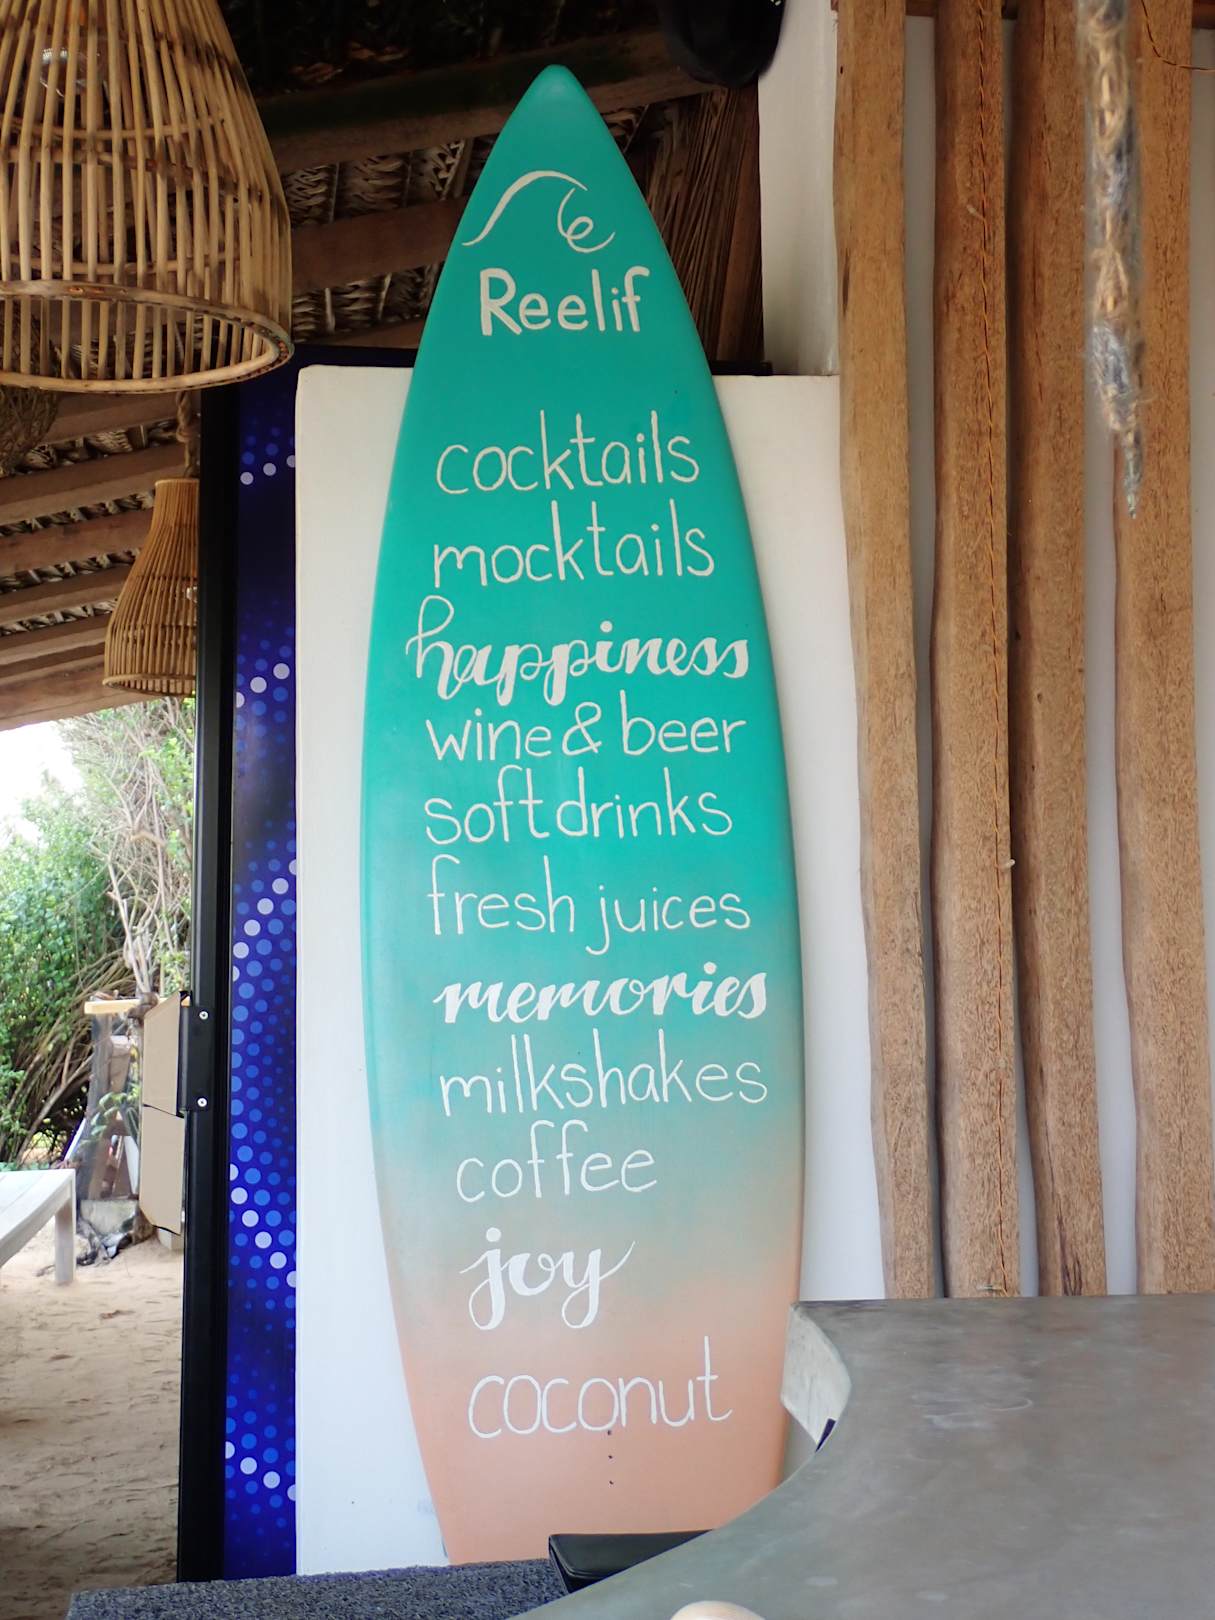 Reelif
cocktails
mocktails
happiness
wine & beer
soft drinks
fresh juices
memories
milkshakes
coffee
joy
coconut